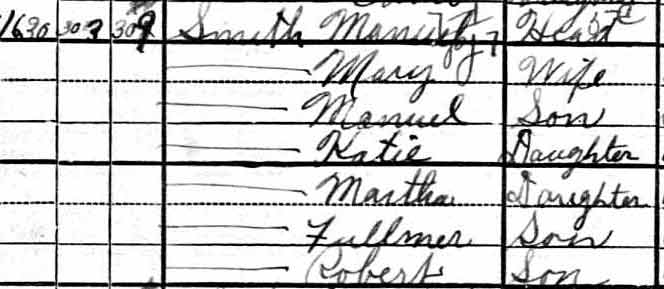 1630 302 309 Smith Manuel Head
Mary Wife
Manuel Son
Katie Daughter
Martha Daughter
Fullmer Son
Robert Son